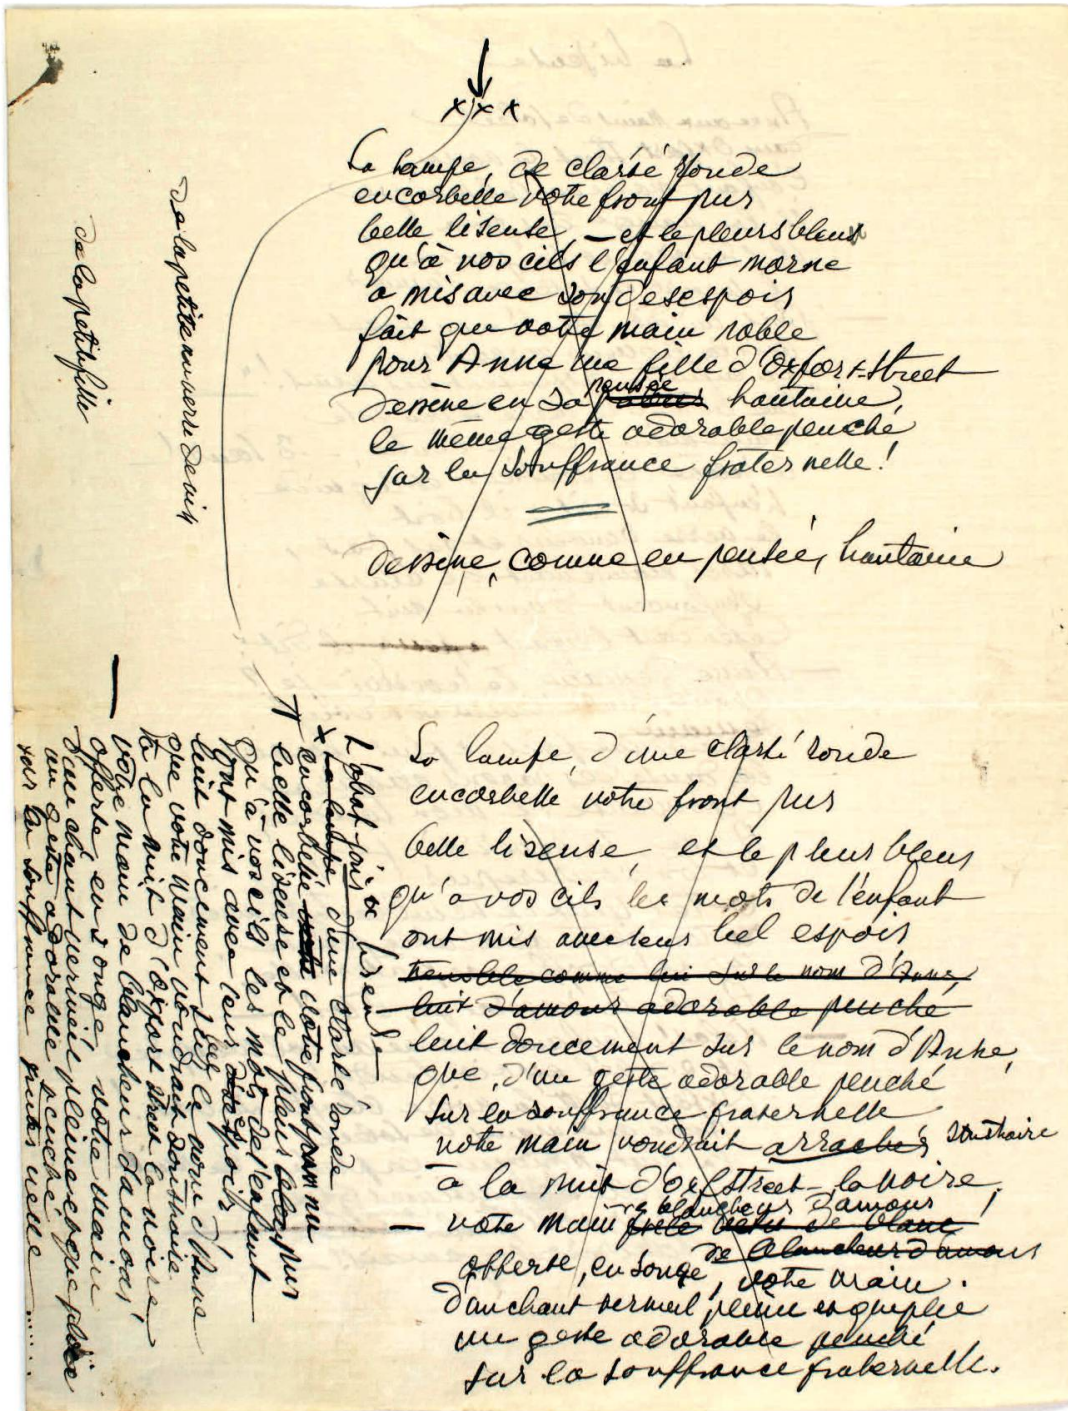 x x x
La lampe, de clarté ronde
encorbelle votre front pur
belle liseuse, — et le pleurs bleus
qu'à vos cils l'enfant morne
a mis avec son desespoir
fait que votre main noble
pour Anne une fille d'Oxfor-Street
Dessine en sa pensée hautaine,
le même geste adorable penché
sur la souffrance fraternelle!
Dessine, comme en pensée, hautaine
La lampe, d'une clarté ronde
encorbelle votre front pur
belle liseuse, et le pleur bleus
qu'à vos cils les mots de l'enfant
ont mis avec leur bel espoir
tremble comme lui sur le nom d'Anne,
luit d'amour adorable penché
luit doucement sur le nom d'Anne,
que, d'un geste adorable penché
sur la souffrance fraternelle
votre main voudrait arracher soustraire
à la nuit d'Oxfstreet la noire,
— votre main de blancheurs d'amour!
de blancheur d'amour
offerte, en songe, votre main.
D'un chant vermeil pleine
un geste adorable penché
sur la souffrance fraternelle.
De la petite
De la petite fille
La lampe d'une clarté ronde
encorbelle votre front pur
belle liseuse et le pleur bleu
qu'à vos cils les mots de l'enfant
ont mis avec leur espoir
luit doucement sur le nom d'Anne
que votre main voudrait soustraire
à la nuit d'Oxfort street la noire
votre main de blancheur d'amour!
offerte en songe, votre main
d'un chant vermeil pleine
un geste adorable penché
sur la souffrance